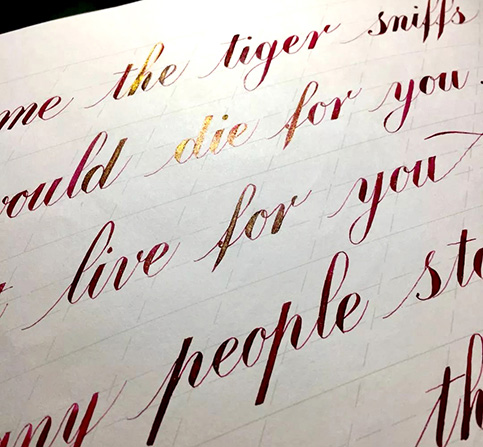 me the tiger sniffs
would die for you.
live for you
people